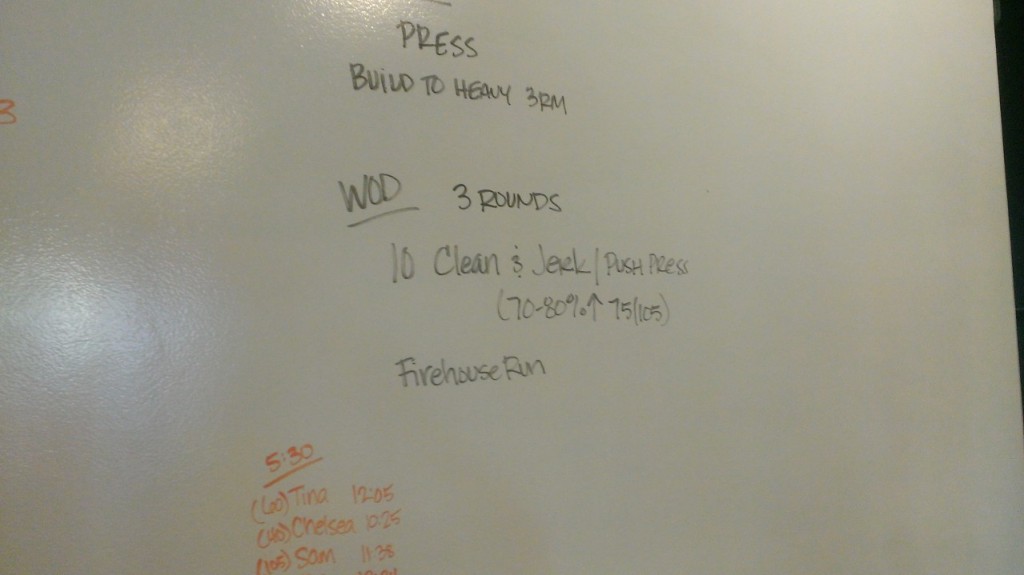 PRESS
BUILD TO HEAVY 3RM
3
WOD 3 ROUNDS
10 Clean & Jerk / PUSH PRESS
(70-80%↑ 75/105)
Firehouse Run
5:30
(60) Tina 12:05
Chelsea 10:25
(105) Sam 11:38